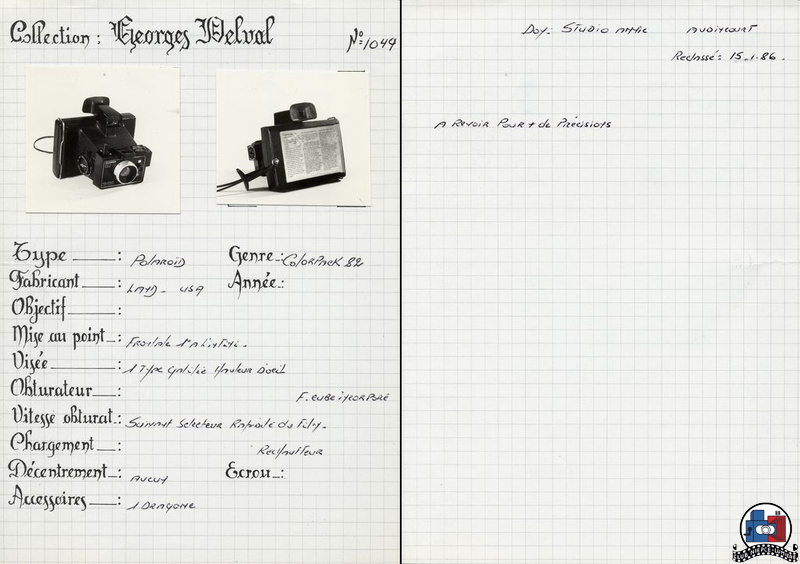 Collection : Georges Delval
Nº 1044
Type : POLAROID
Genre : COLORPACK 82
Fabricant : LAND - USA
Année :
Objectif :
Mise au point : Frontale 1m à l'infini.
Visée : 1 Type Galilée Hauteur D'oeil
Obturateur :
F. cube incorporé
Vitesse obturat. : Suivant Selecteur Rapidité du Film.
Chargement :
Rechauffeur
Décentrement : AUCUN
Ecrou :
Accessoires : 1 DRAGONNE
Don: STUDIO AUDINCOURT
Reclassé: 15.1.86.
A Revoir Pour + de Précisions